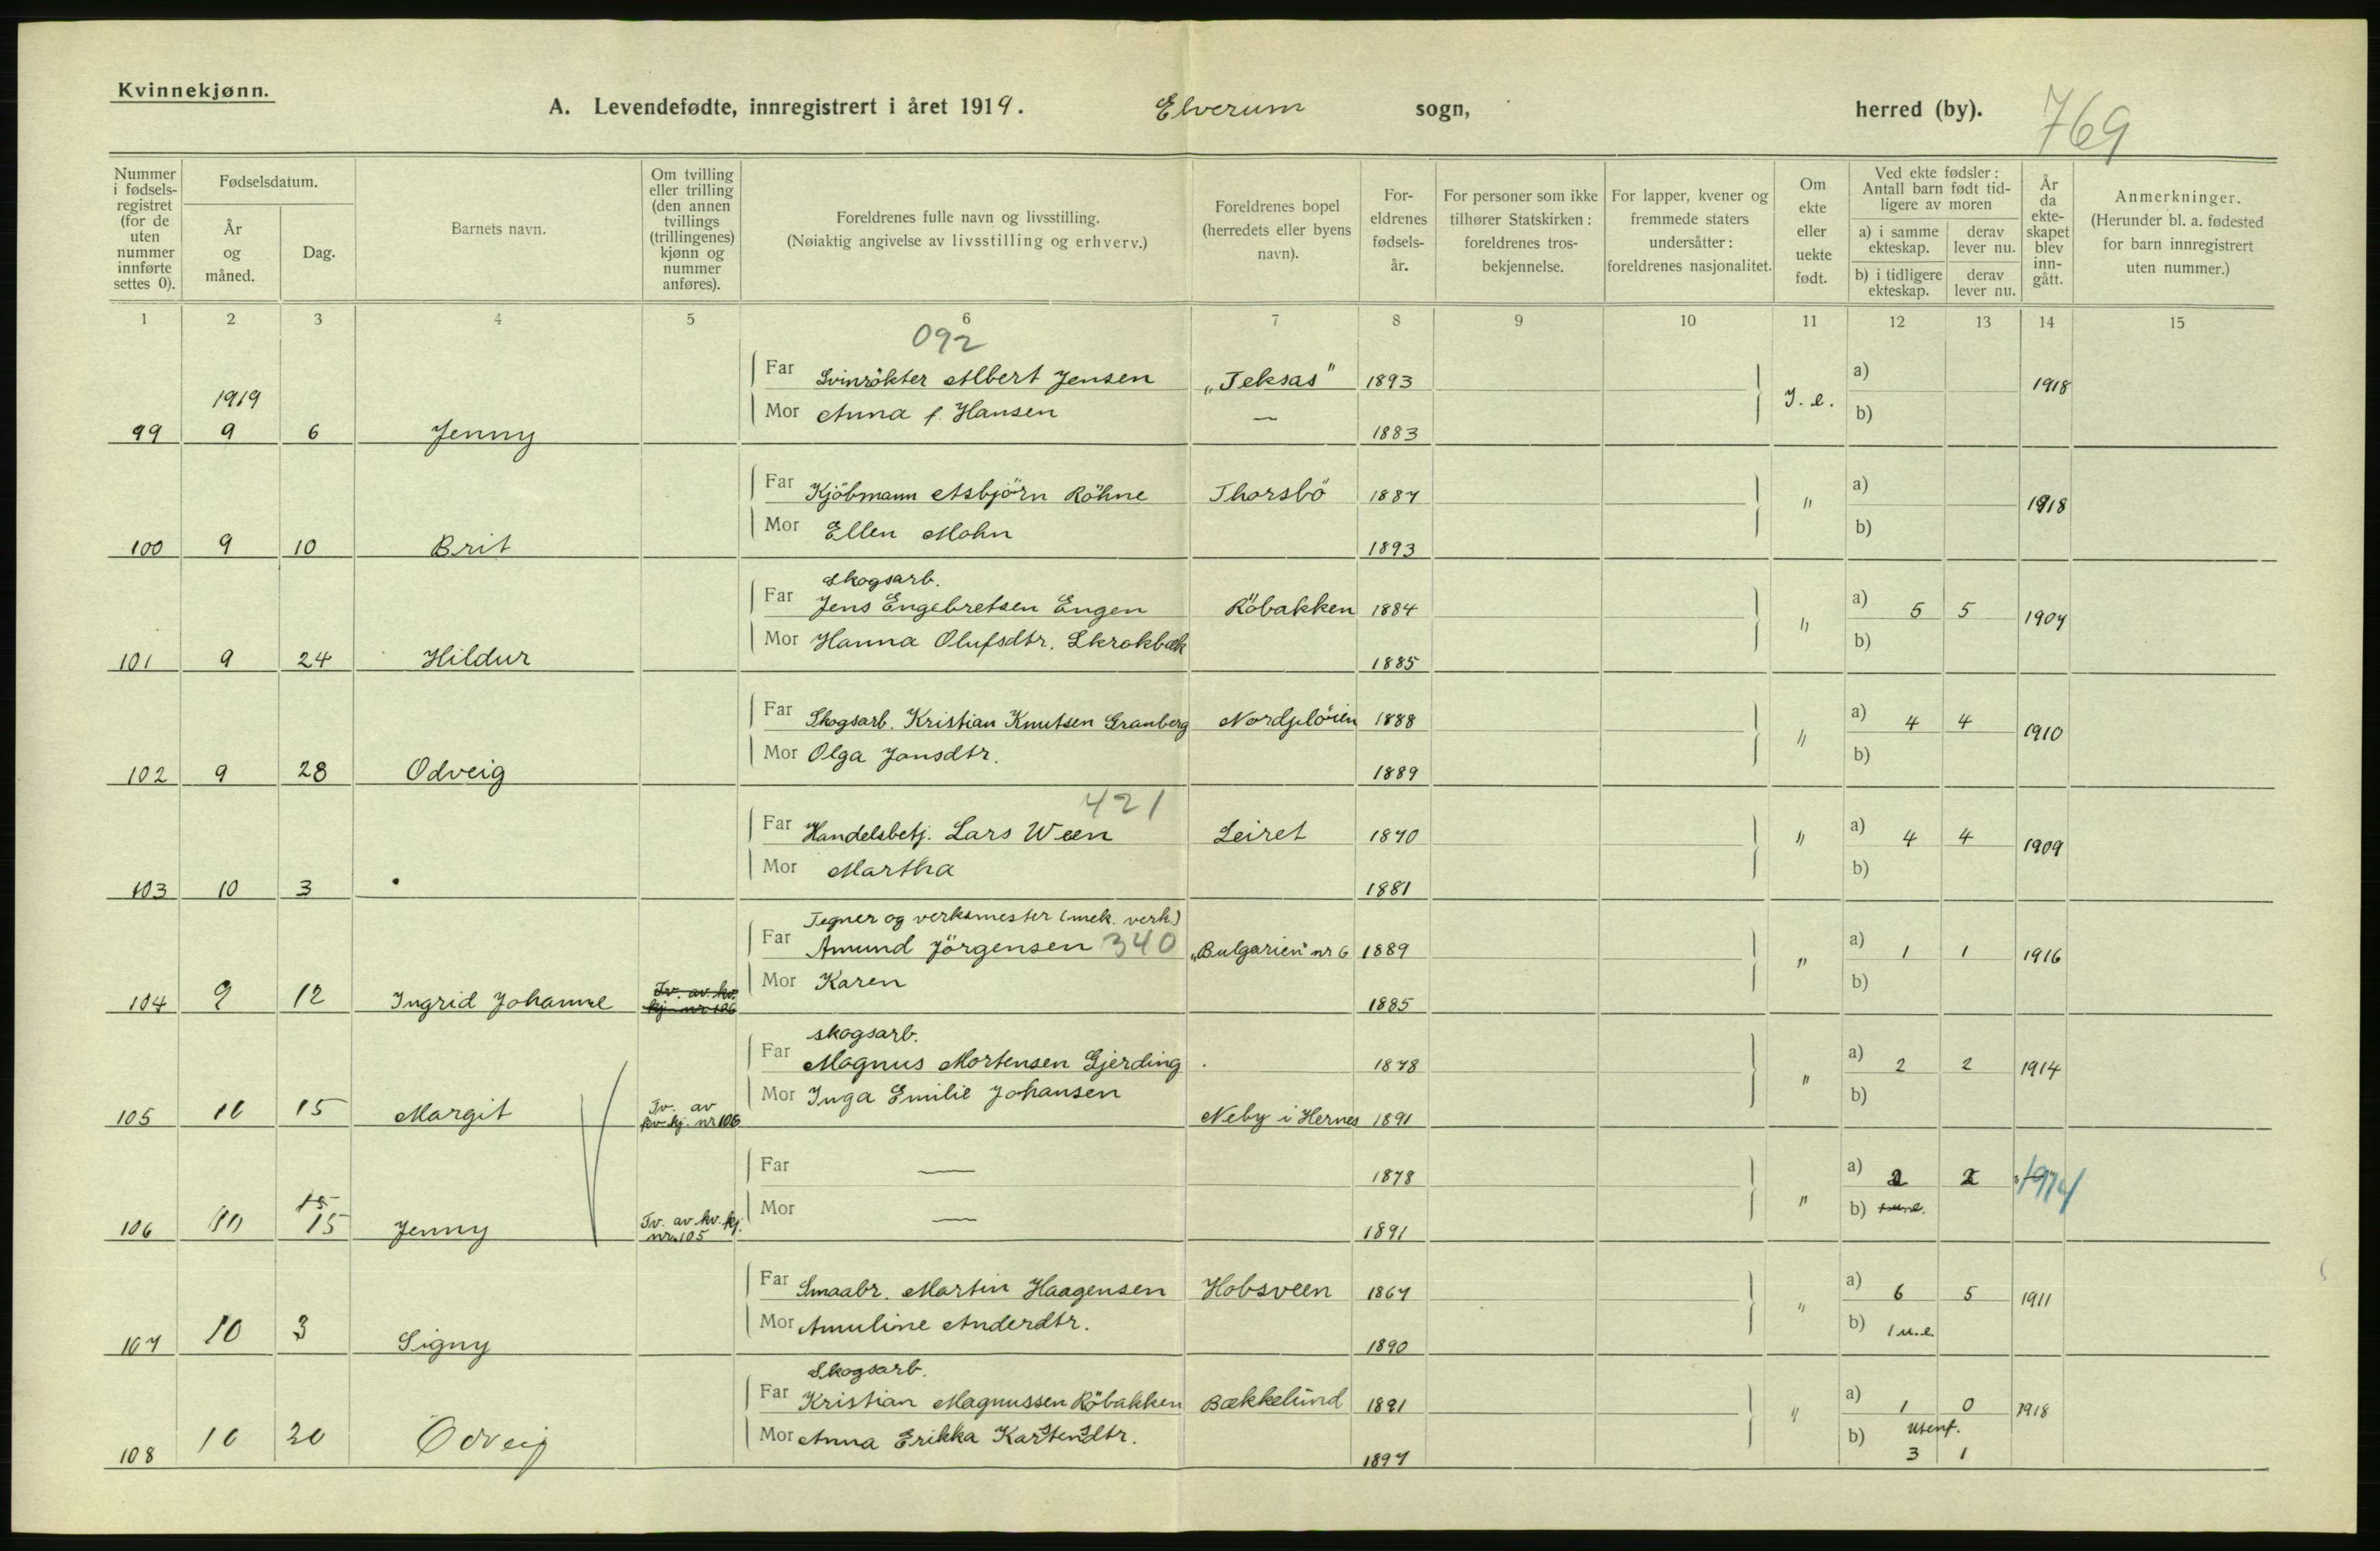 Kvinnekjønn.
A. Levendefødte, innregistrert i året 1919. Elverum sogn, herred (by). 769
Nummer i fødsels-registret (for de uten nummer innførte settes 0).
Fødselsdatum.
År og måned.
Dag.
Barnets navn.
Om tvilling eller trilling (den annen tvillings (trillingenes) kjønn og nummer anføres).
Foreldrenes fulle navn og livsstilling.
(Nøiaktig angivelse av livsstilling og erhverv.)
Foreldrenes bopel (herredets eller byens navn).
For-eldrenes fødsels-år.
For personer som ikke tilhører Statskirken: foreldrenes tros-bekjennelse.
For lapper, kvener og fremmede staters undersåtter: foreldrenes nasjonalitet.
Om ekte eller uekte født.
Ved ekte fødsler: Antall barn født tid-ligere av moren
a) i samme ekteskap.
derav lever nu.
b) i tidligere ekteskap.
derav lever nu.
År da ekte-skapet blev inn-gått.
Anmerkninger.
(Herunder bl. a. fødested for barn innregistrert uten nummer.)
1 2 3 4 5 6 7 8 9 10 11 12 13 14 15
092
Far Svinrökter Albert Jensen „Teksas" 1893 a) 1918
1919 I. e.
Mor Anna f. Hansen — b)
99 9 6 Jenny 1883
Far Kjöbmann Asbjörn Röhne Thorsbö 1887 " a) 1918
Mor Ellen Mohn b)
100 9 10 Brit 1893
Skogsarb.
Far Jens Engebretsen Engen Röbakken 1884 " a) 5 5 1907
Mor Hanna Olufsdtr. Skrokbæk b)
101 9 24 Hildur 1885
Far Skogsarb. Kristian Knutsen Granberg 1888 " a) 4 4 1910
Mor Olga Jonsdtr. b)
102 9 28 Odveig 1889
421
Far Handelsbetj. Lars Ween Leiret 1870 " a) 4 4 1909
Mor Martha b)
103 10 3 1881
Tegner og verksmester (mek. verk)
Far Amund Jörgensen 340 „Bulgarien" nr 6 1889 " a) 1 1 1916
Mor Karen b)
104 9 12 Ingrid Johanne Tv. av kv. kj. nr 106 1885
skogsarb.
Far Magnus Mortensen Gjerding 1878 " a) 2 2 1914
Mor Inga Emilie Johansen b)
105 10 15 Margit Tv. av kv. kj. nr 106 Neby i Hernes 1891
Far — 1878 " a) 2 2 1914
15
Mor — b) 1 u.e.
106 10 15 Jenny Tv. av kv. kj. nr. 105 1891
Far Smaabr. Martin Haagensen Hobsveen 1867 " a) 6 5 1911
Mor Amuline Anderdtr. b) 1 u.e.
107 10 3 Signy 1890
Skogsarb.
Far Kristian Magnussen Röbakken Bækkelund 1891 " a) 1 0 1918
Mor Anna Erikka Karstensdtr. b) utenf.
108 10 20 Odveig 1897 3 1